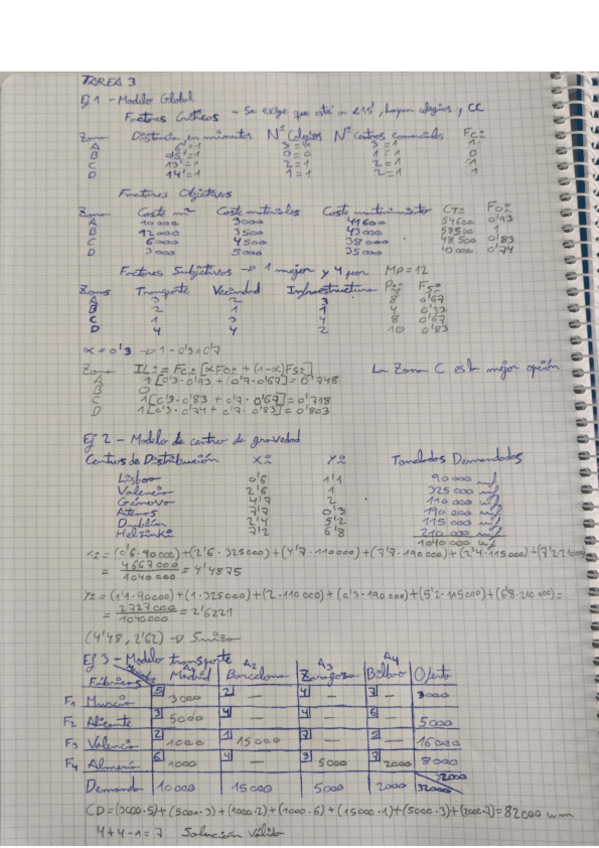 TAREA 3
Ej 1 - Modelo Global
Factores Críticos - Se exige que esté a <15', hayan colegios y CC
Zona Distancia en minutos Nº Colegios Nº Centros comerciales FCi
A 3 = 1 1
B 0 = 0 1 = 1 0
C 13' = 1 2 = 1 2 = 1 1
D 14' = 1 1 = 1 2 = 1 1
Factores Objetivos
Zona Coste m² Coste materiales Coste mantenimiento CTi FOi
A 10000 3000 41600 54600 0'93
B 12000 3500 43000 58500 1
C 6000 4500 38000 48500 0'83
D 3000 5000 35000 0'74
Factores Subjetivos -> 1 mejor y 4 peor MP=12
Zona Transporte Vecindad Infraestructura Pi FSi
A 3 2 3 8 0'67
B 2 1 1 4 0'33
C 1 3 4 8 0'67
D 4 4 2 10 0'83
α = 0'3 -> 1-0'3=0'7
Zona ILi = FCi [αFOi + (1-α)FSi] La Zona C es la mejor opción
A 1[0'3·0'93 + (0'7·0'67)] = 0'748
B 0
C 1[0'3·0'83 + 0'7·0'67)] = 0'718
D 1[0'3·0'74 + 0'7·0'83] = 0'803
Ej 2 - Modelo de centro de gravedad
Centros de Distribución Xi Yi Toneladas Demandadas
Lisboa 0'6 1'1 90000
Valencia 2'6 1 325000
Génova 4'7 2 110000
Atenas 7'7 0'3 190000
Dublín 2'4 5'2 115000
Helsinki 7'2 6'8 210000
1040000
Xi = (0'6·90000)+(2'6·325000)+(4'7·110000)+(7'7·190000)+(2'4·115000)+
= 4667000 / 1040000 = 4'4875
Yi = (1'1·90000)+(1·325000)+(2·110000)+(0'3·190000)+(5'2·115000)+(6'8·210000)=
= 2727000 / 1040000 = 2'6221
(4'48, 2'62) -> Suiza
Ej 3 - Modelo transporte
A2 A3 A4
Fábricas Madrid Barcelona Zaragoza Bilbao Oferta
F1 Murcia 5 3000 2 — 4 — 7 — 3000
F2 Alicante 3 5000 4 — 4 — 6 — 5000
F3 Valencia 2 1000 1 15000 7 — 5 — 16000
F4 Almería 6 1000 4 — 3 5000 7 2000 8000
Demanda 10000 15000 5000 2000 32000 32000
CD = (3000·5)+(5000·3)+(1000·2)+(1000·6)+(15000·1)+(5000·3)+(2000·7)=82000 um
4+4-1=7 Solución válida